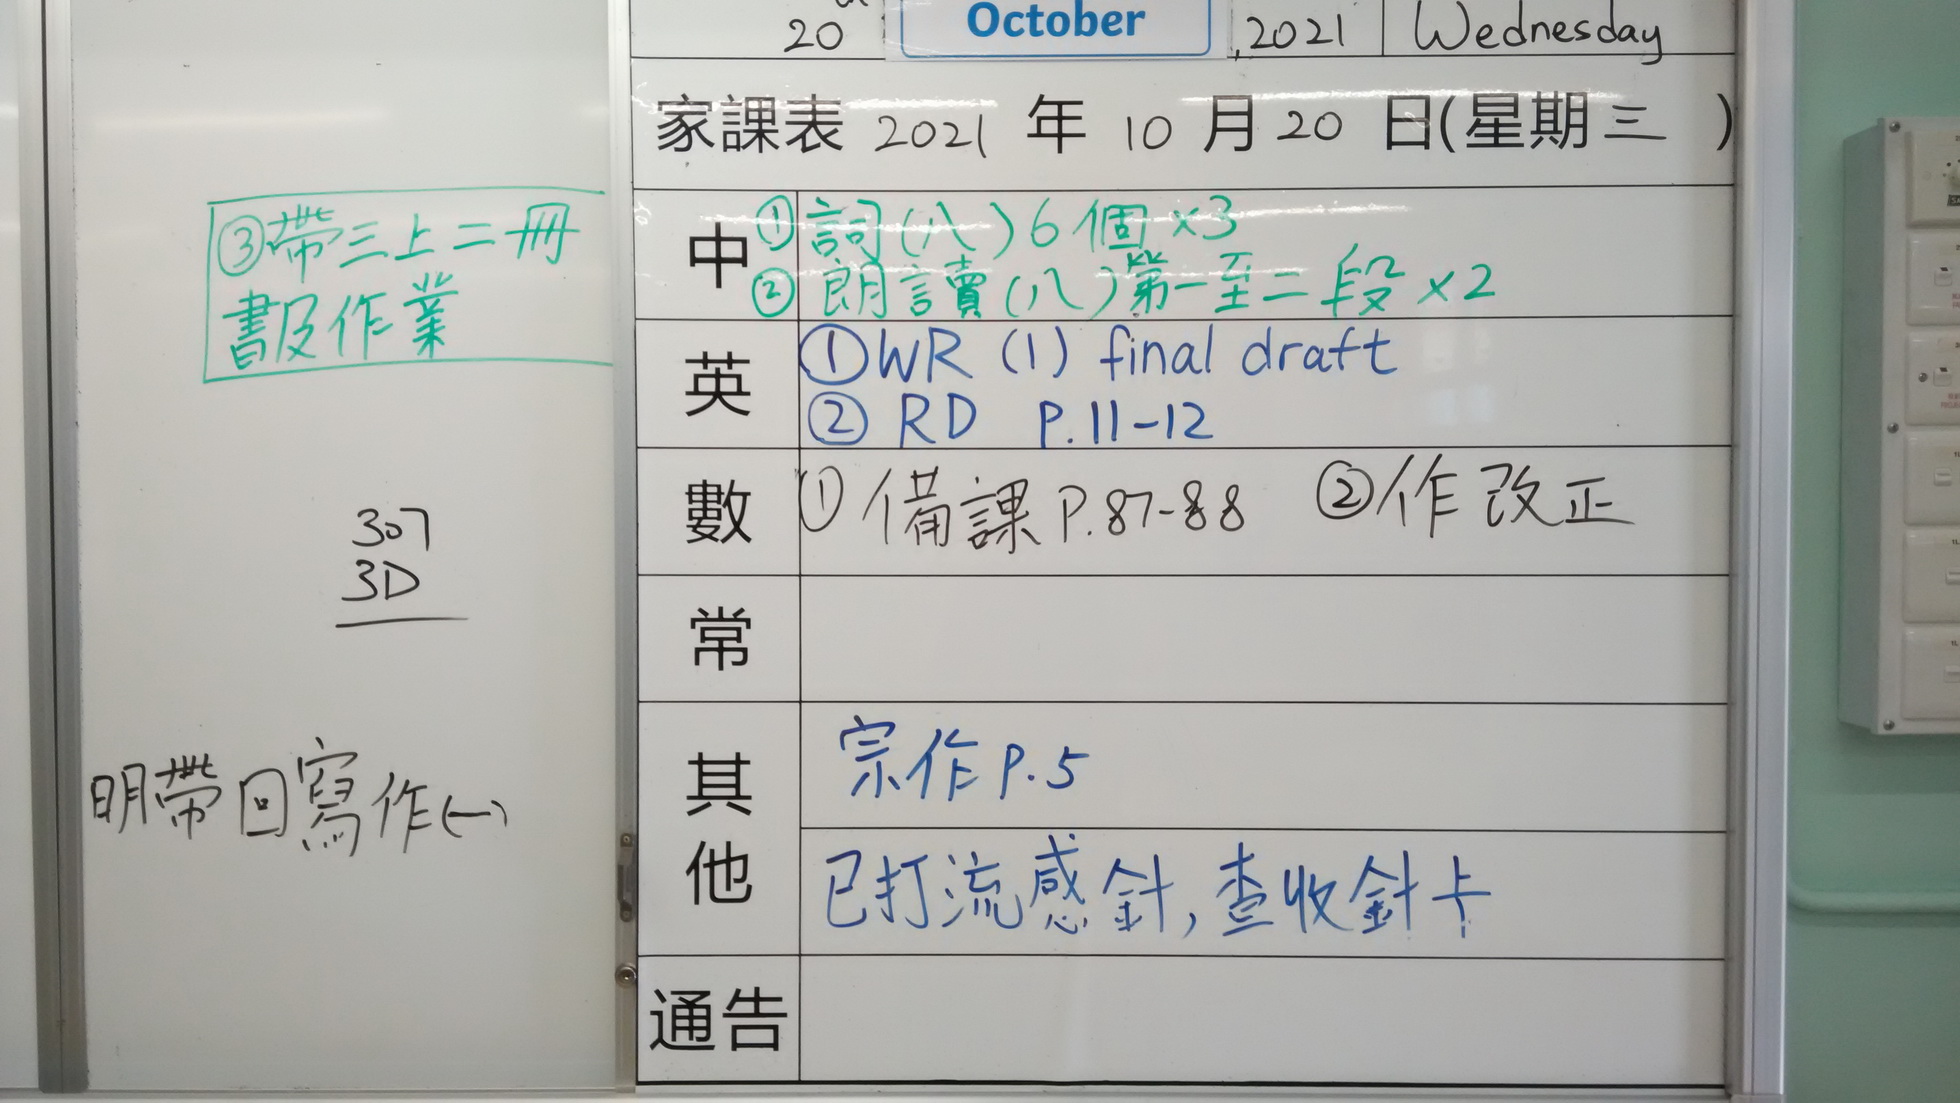 ③帶三上二冊
書及作業
307
3D
明帶回寫作(一)
20th October, 2021 Wednesday
家課表 2021 年 10 月 20 日(星期三)
中 ①詞(八)6個×3
②朗讀(八)第一至二段×2
英 ①WR (1) final draft
② RD P.11-12
數 ①備課P.87-88 ②作改正
常
其他 宗作P.5
已打流感針,查收針卡
通告